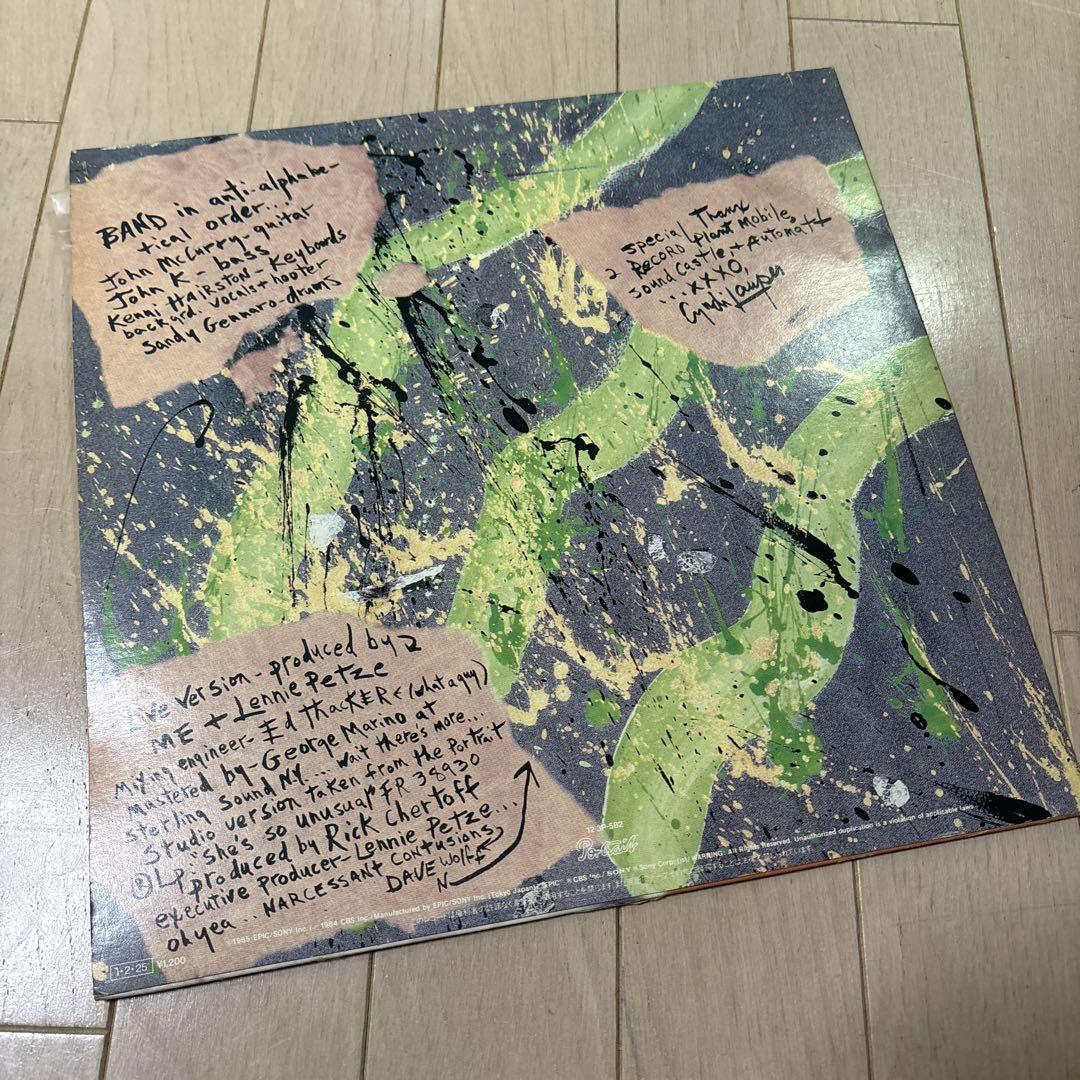 BAND in anti-alphabe-
tical order...
John McCurry-guitar
John K - bass
Kenni HAIRSTON-Keyboards
backgrd. vocals + hooter
Sandy Gennaro-drums
special Thanx
2 RECORD plant mobile,
sound Castle + Automatt
...XXXO,
Cyndi Lauper
Live version - produced by 2
ME + Lennie Petze
Mixing engineer - Ed thacKER < (what a guy)
mastered by - George Marino at
sterling sound NY... wait there's more...
Studio version taken from the Portrait
LP "she's so unusual" FR 38930
produced by Rick Chertoff
executive producer - Lennie Petze...
oh yea... NARCESSANT CONfUSIONS
DAVE Wolff
12·3P-582
Portrait
℗1965 EPIC/SONY Inc. / ℗ 1984 CBS Inc./Manufactured by EPIC/SONY Inc. (Tokyo Japan)/"EPIC" ® CBS Inc./ SONY ® Sony Corp.(st) WARNING: All Rights Reserved. Unauthorized duplication is a violation of applicable laws.
1·2·25 ¥1,200